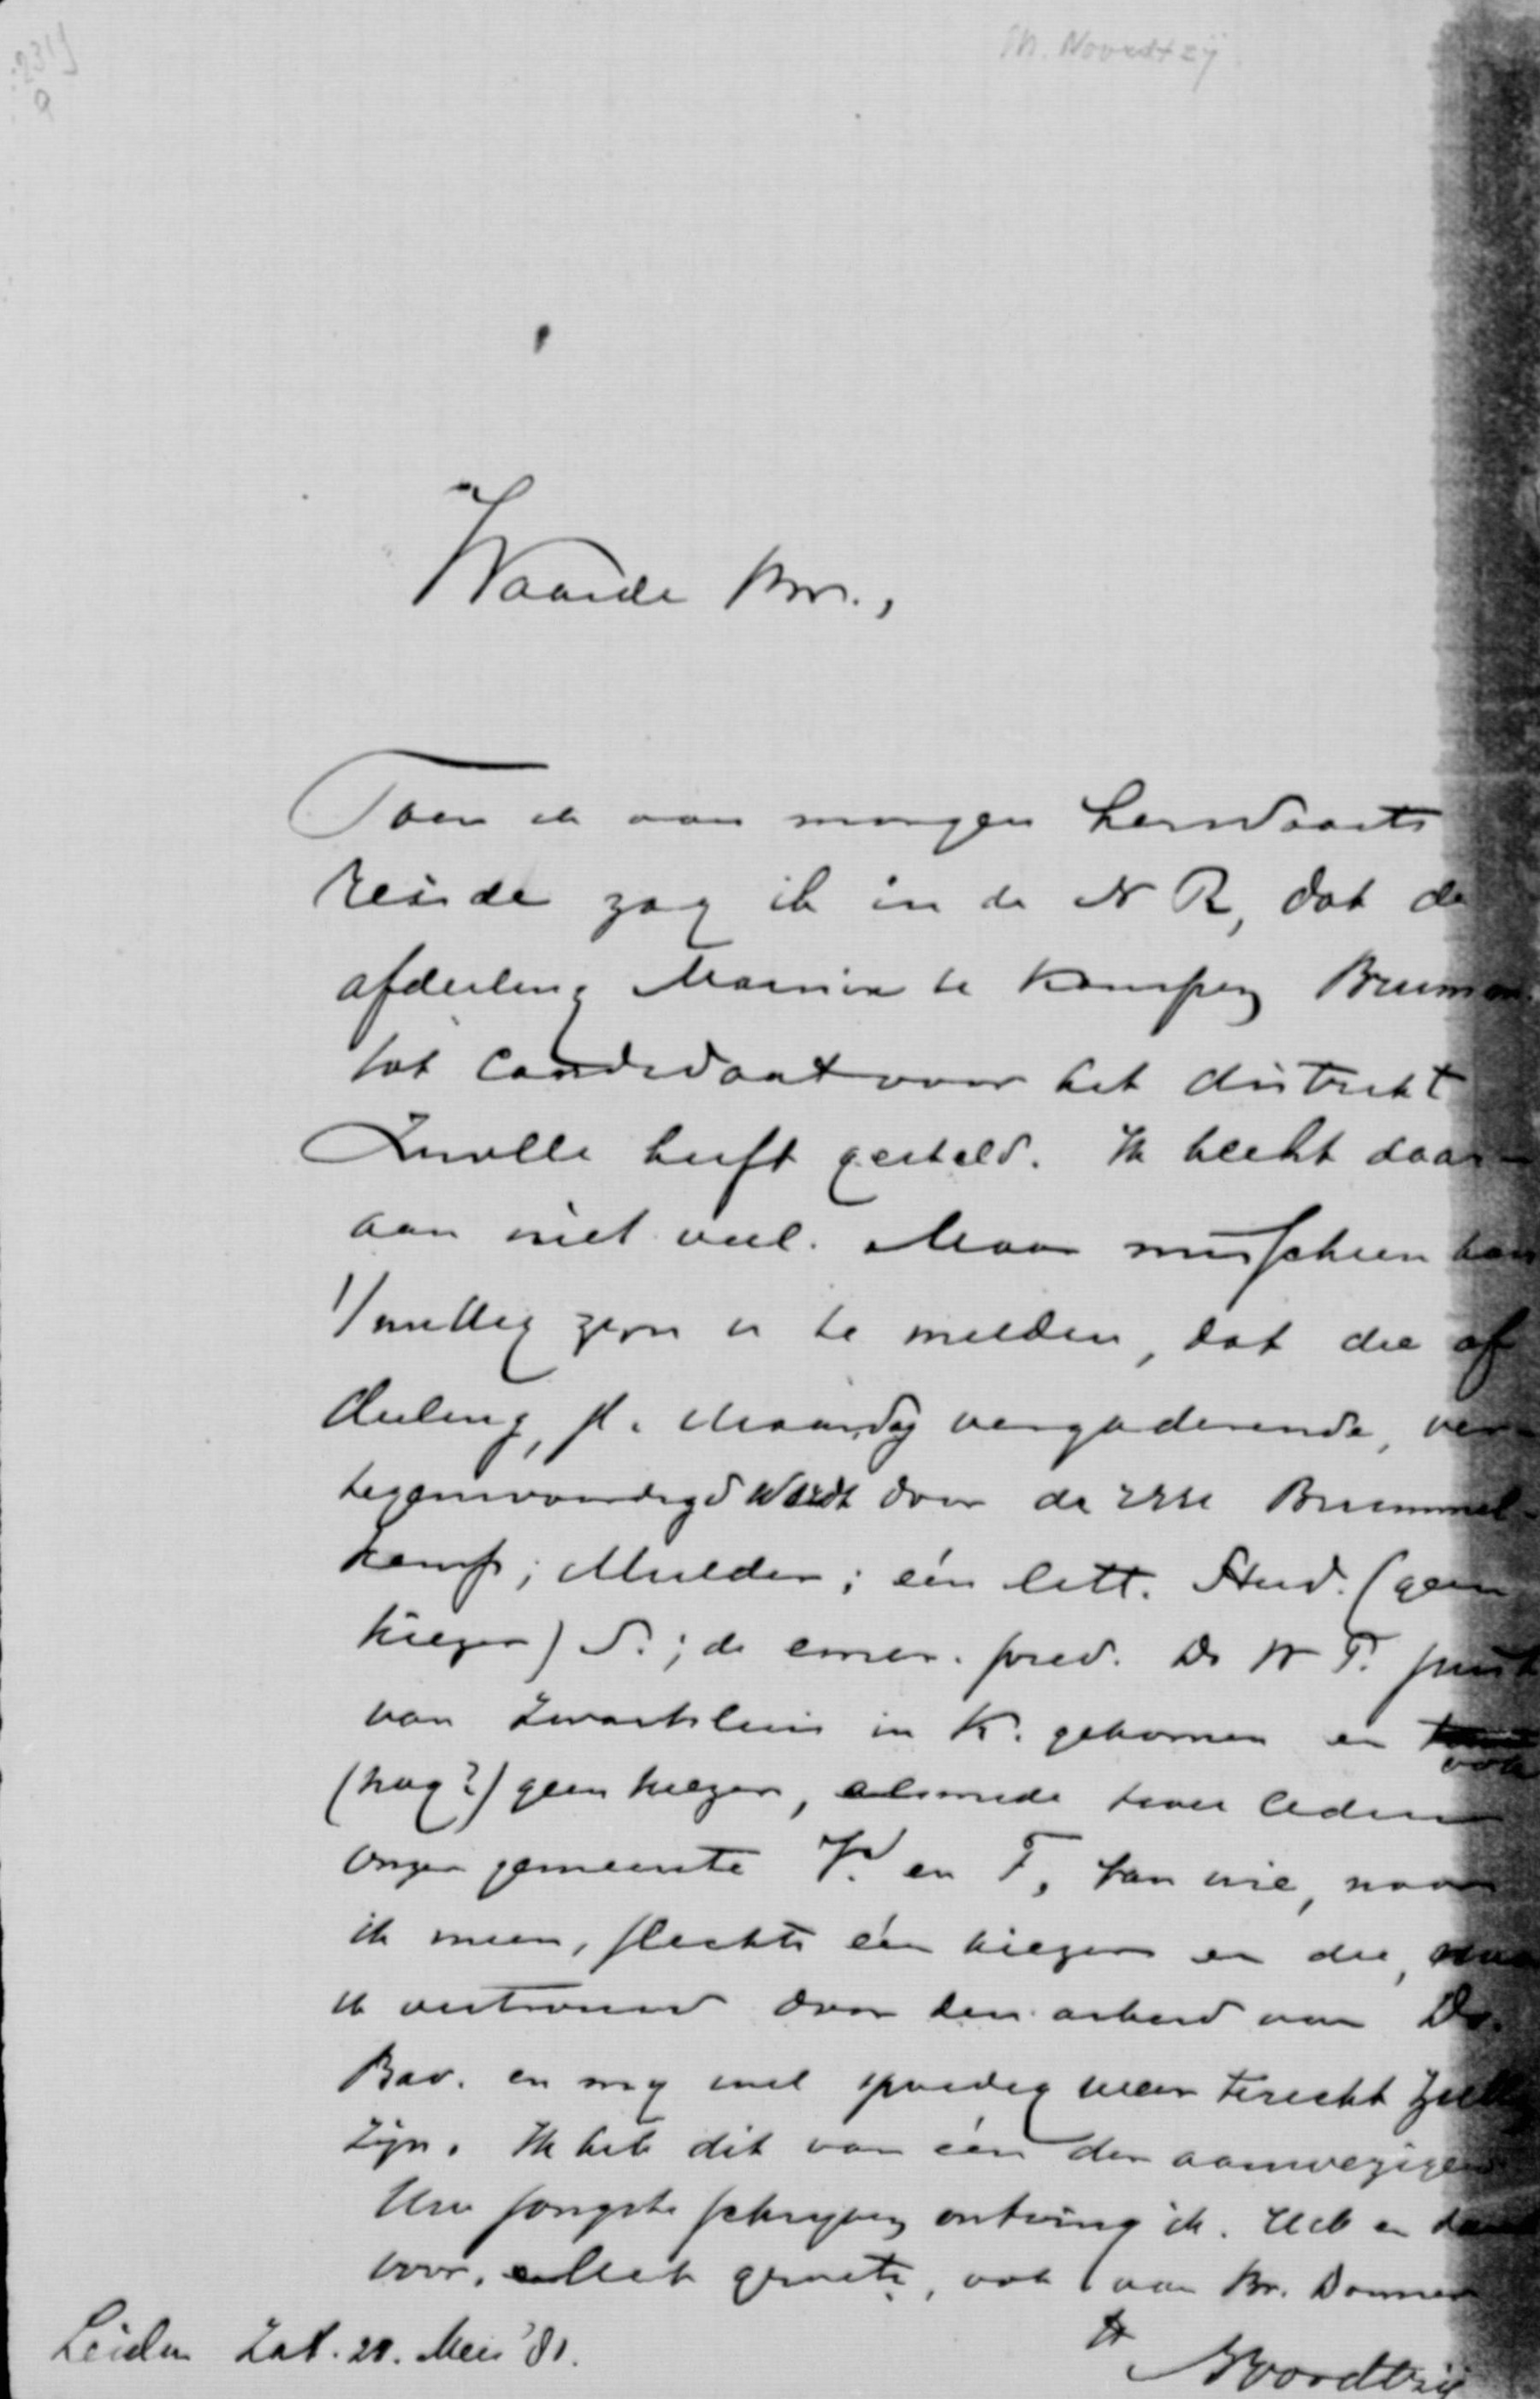 M. Noordtzij
Waarde Br.,
Toen ik van morgen herwaarts
reisde zag ik in de N R, dat de
afdeeling Marnix te Kampen Brumm
tot candidaat voor het district
Zwolle heeft gesteld. Ik hecht daar-
aan niet veel. Maar misschien kan
't nuttig zijn u te melden, dat die af
deeling, jl. Maandag vergaderende, ver-
tegenwoordigd werdt door de HH Brummel-
kamp; Mulder; één litt. Stud. (geen
kiezer) S.; de emer. pred. Ds W F. juist
van Zwartsluis in K. gekomen en ook
(nog?) geen kiezer, alsmede twee leden
onzer gemeente V. en F, van wie, naar
ik meen, slechts één kiezer en die,
ik vertrouw door den arbeid van Dr.
Bav. en mij wel spoedig weer terecht zullen
zijn. Ik heb dit van één der aanwezigen
Uw jongste schrijven ontving ik. Heb er dank
voor. Met groete, ook van Br. Donner
tt
Noordtzij
Leiden Zat. 28. Mei '81.